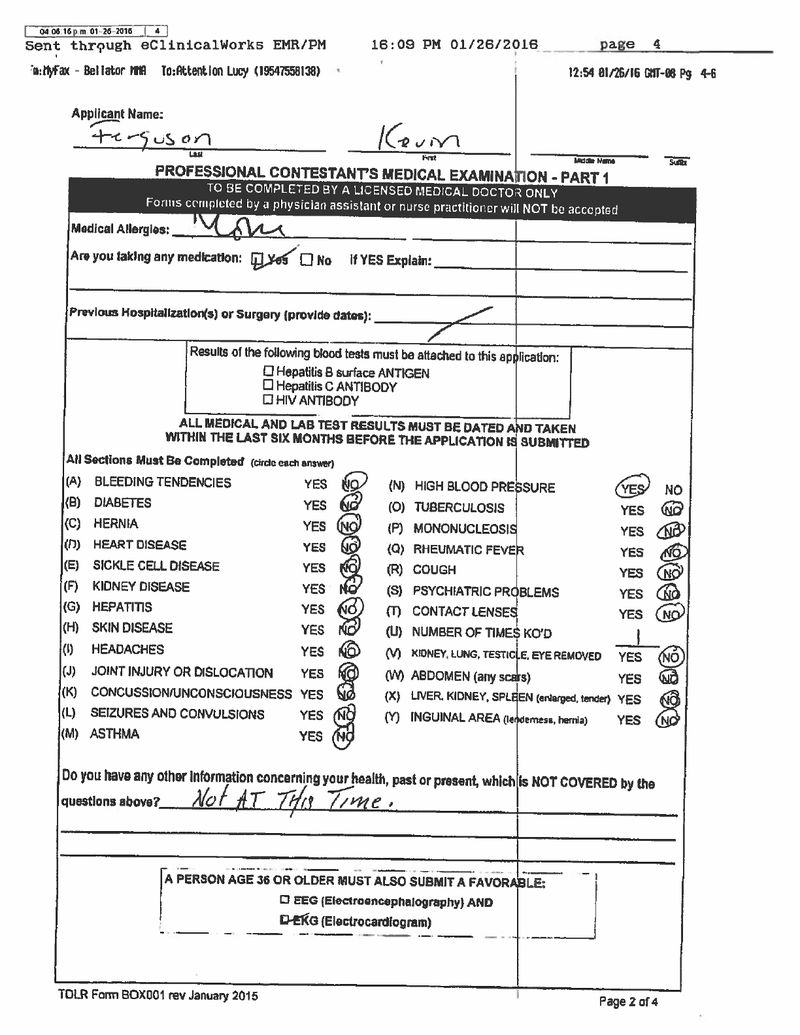 04 06 16 p m 01-26-2016 4
Sent through eClinicalWorks EMR/PM 16:09 PM 01/26/2016 page 4
m:MyFax - Bellator MMA To:Attention Lucy (19547558138) 12:54 01/26/16 GMT-08 Pg 4-6
Applicant Name:
Ferguson Kevin
Last First Middle Name Suffix
PROFESSIONAL CONTESTANT'S MEDICAL EXAMINATION - PART 1
TO BE COMPLETED BY A LICENSED MEDICAL DOCTOR ONLY
Forms completed by a physician assistant or nurse practitioner will NOT be accepted
Medical Allergies:
Are you taking any medication: Yes No If YES Explain:
Previous Hospitalization(s) or Surgery (provide dates):
Results of the following blood tests must be attached to this application:
Hepatitis B surface ANTIGEN
Hepatitis C ANTIBODY
HIV ANTIBODY
ALL MEDICAL AND LAB TEST RESULTS MUST BE DATED AND TAKEN
WITHIN THE LAST SIX MONTHS BEFORE THE APPLICATION IS SUBMITTED
All Sections Must Be Completed (circle each answer)
(A) BLEEDING TENDENCIES YES NO
(B) DIABETES YES NO
(C) HERNIA YES NO
(D) HEART DISEASE YES NO
(E) SICKLE CELL DISEASE YES NO
(F) KIDNEY DISEASE YES NO
(G) HEPATITIS YES NO
(H) SKIN DISEASE YES NO
(I) HEADACHES YES NO
(J) JOINT INJURY OR DISLOCATION YES NO
(K) CONCUSSION/UNCONSCIOUSNESS YES NO
(L) SEIZURES AND CONVULSIONS YES NO
(M) ASTHMA YES NO
(N) HIGH BLOOD PRESSURE YES NO
(O) TUBERCULOSIS YES NO
(P) MONONUCLEOSIS YES NO
(Q) RHEUMATIC FEVER YES NO
(R) COUGH YES NO
(S) PSYCHIATRIC PROBLEMS YES NO
(T) CONTACT LENSES YES NO
(U) NUMBER OF TIMES KO'D 1
(V) KIDNEY, LUNG, TESTICLE, EYE REMOVED YES NO
(W) ABDOMEN (any scars) YES NO
(X) LIVER, KIDNEY, SPLEEN (enlarged, tender) YES NO
(Y) INGUINAL AREA (tenderness, hernia) YES NO
Do you have any other information concerning your health, past or present, which is NOT COVERED by the
questions above? Not AT This Time.
A PERSON AGE 36 OR OLDER MUST ALSO SUBMIT A FAVORABLE:
EEG (Electroencephalography) AND
EKG (Electrocardiogram)
TDLR Form BOX001 rev January 2015 Page 2 of 4